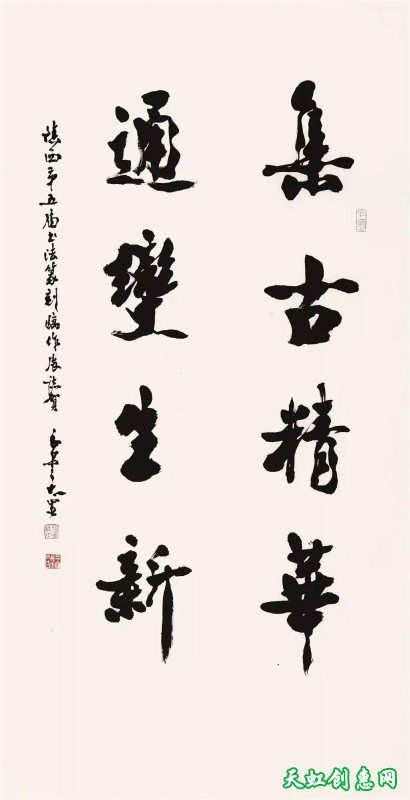 集古精華
通變生新
第五屆書法篆刻
作展誌賀
天虹创惠网